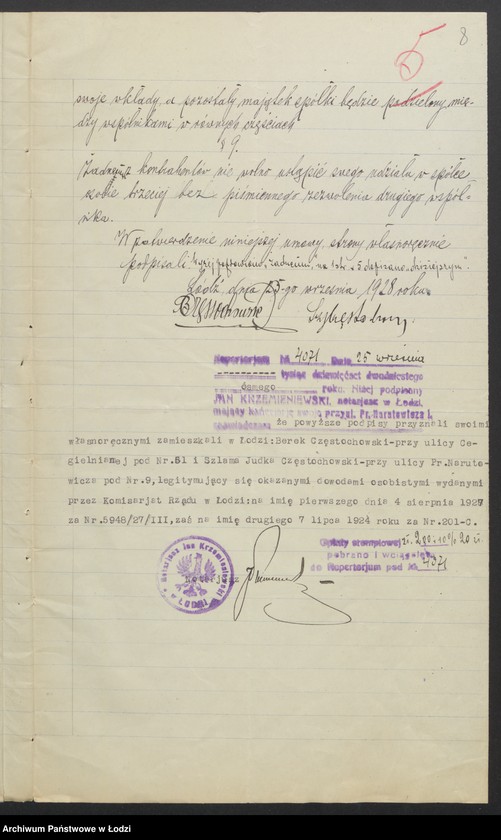 5 8
swoje wkłady, a pozostały majątek spółki będzie podzielony mię-
dzy wspólnikami w równych częściach
§ 9.
Żadnemu z kontrahentów nie wolno ustąpić swego udziału w spółce
osobie trzeciej bez piśmiennego zezwolenia drugiego wspól-
nika.
W potwierdzenie niniejszej umowy, strony własnoręcznie
podpisali. Wyżej poprawiono na str. 5 dopisano
Łódź, dnia 25-go września 1928 roku
BCzęstochowski
Repertorjum № 4071 Dnia 25 września
tysiąc dziewięćset dwudziestego
ósmego roku. Niżej podpisany
JAN KRZEMIENIEWSKI, notarjusz w Łodzi,
mający kancelarję swoją przy ul. Pr. Narutowicza
zaświadczam że powyższe podpisy przyznali swoimi
własnoręcznymi zamieszkali w Łodzi: Berek Częstochowski-przy ulicy Ce-
gielnianej pod Nr.51 i Szlama Judka Częstochowski-przy ulicy Pr.Naruto-
wicza pod Nr.9, legitymujący się okazanymi dowodami osobistymi wydanymi
przez Komisarjat Rządu w Łodzi: na imię pierwszego dnia 4 sierpnia 1927
za Nr.5948/27/III, zaś na imię drugiego 7 lipca 1924 roku za Nr.201-C.
Opłaty stemplowej zł. 20 zł.
pobrano i wciągnięto
do Repertorjum pod № 4071
Notarjusz
Notarjusz Jan Krzemieniewski w ŁODZI
Archiwum Państwowe w Łodzi